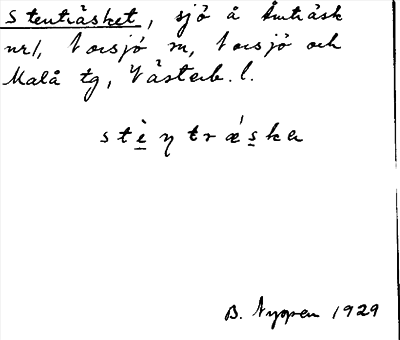 Stenträsket, sjö å Åmträsk
nr1, Norsjö sn, Norsjö och
Malå tg, Västerb. l.
stèntrǽska
B. Nygren 1929